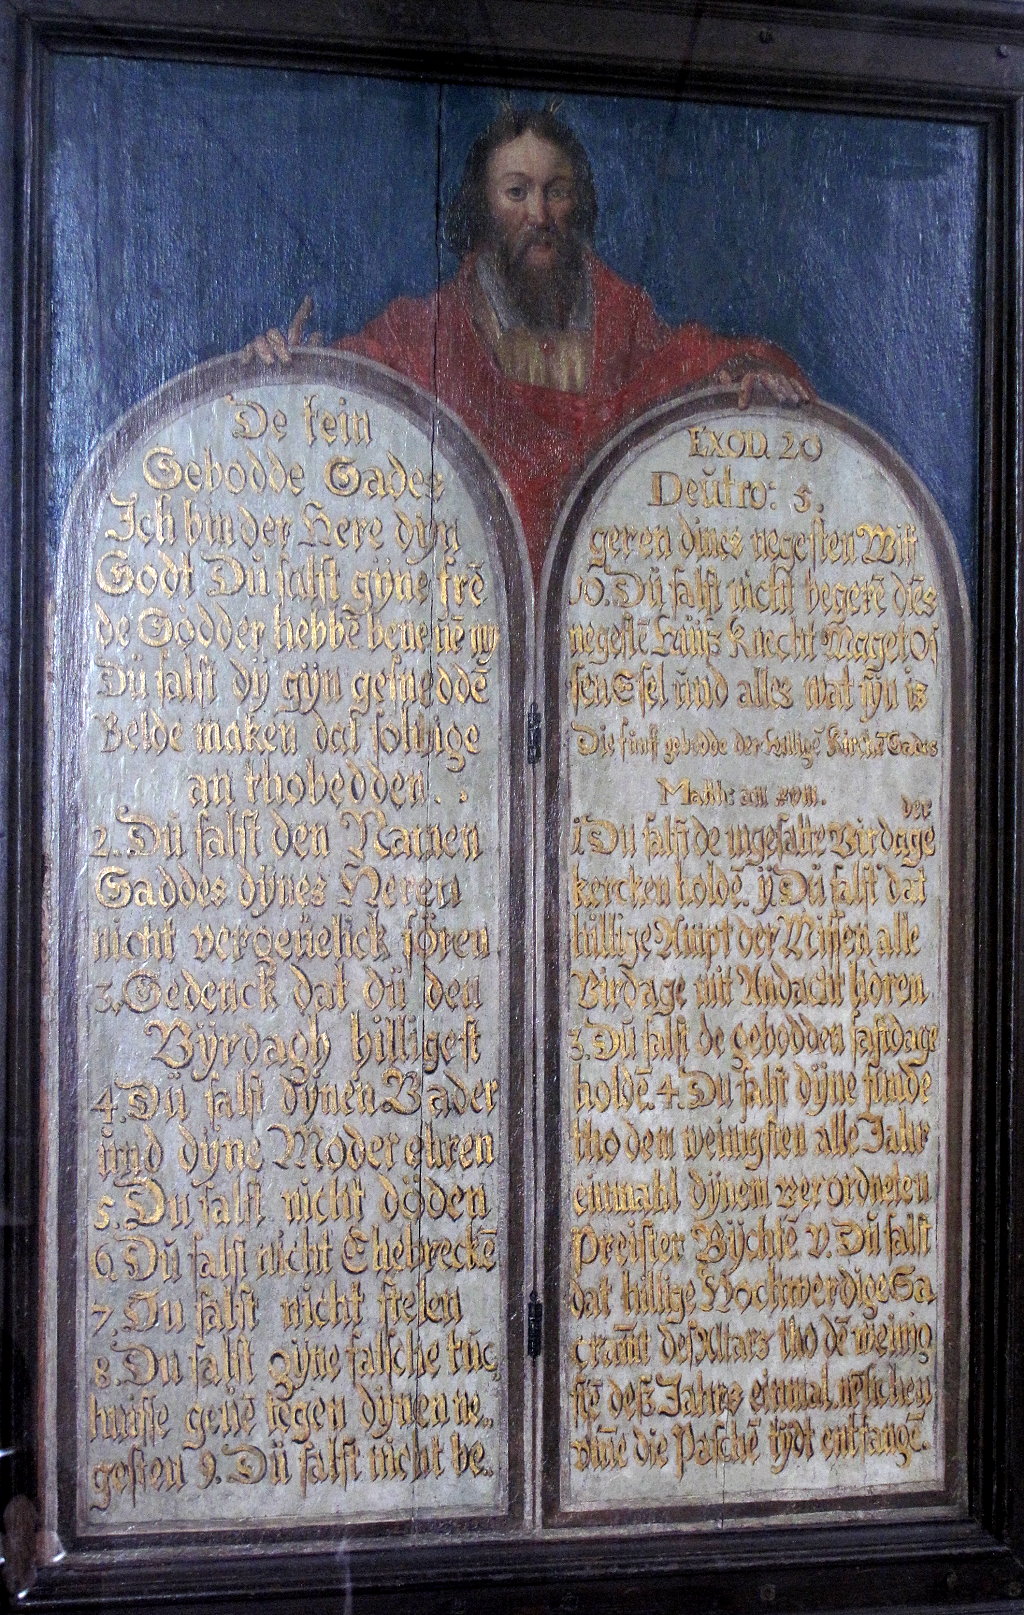 De tein
Gebodde Gades
Ich bin der Here dijn
Godt Dŭ salst gijne frē
de Godder hebbē beneuē my
Dŭ salst dÿ gijn gesnēddē
Belde maken dat soluige
an thobedden
2. Dŭ salst den Namen
Gaddes dÿnes Heren
nicht vergeŭelick fören
3. Gedenck dat dŭ den
Bÿrdagh hilligest
4. Dŭ salst dÿnen Bader
ŭnd dÿne Moder ehren
5. Du salst nicht döden
6. Dŭ salst nicht Ehebreckē
7. Du salst nicht stelen
8. Dŭ salst gÿne falsche tŭc
hnisse geuē tegen dÿnen ne
gesten 9. Dŭ salst nicht be
EXOD. 20
Deŭtro: 5.
geren dines negesten Wiff
10. Dŭ salst nicht begerē dies
negestē Hŭnß Knecht Maget Os
sen Esel ŭnd alles wat syn is
Die funf gebodde der hilligē Kirckē Gades
Matth: am xviii.
der
1 Du salst de ingesatte Virdage
kercken holdē. ij Dŭ salst dat
hillige Ampt der Missen alle
Virdage mit Andacht hören
3. Du salst de gebodden fastdage
holdē. 4. Du salst dÿne sunde
tho dem weinigsten alle Jahr
einmahl dÿnem verordneten
Preister Bÿchtē v. Dŭ salst
dat hillige Hochwerdige Sa
cramt des Altars tho dē weinig
stē deß Jahres einmal nēhlichen
vmē die Paschē tydt entfangē.